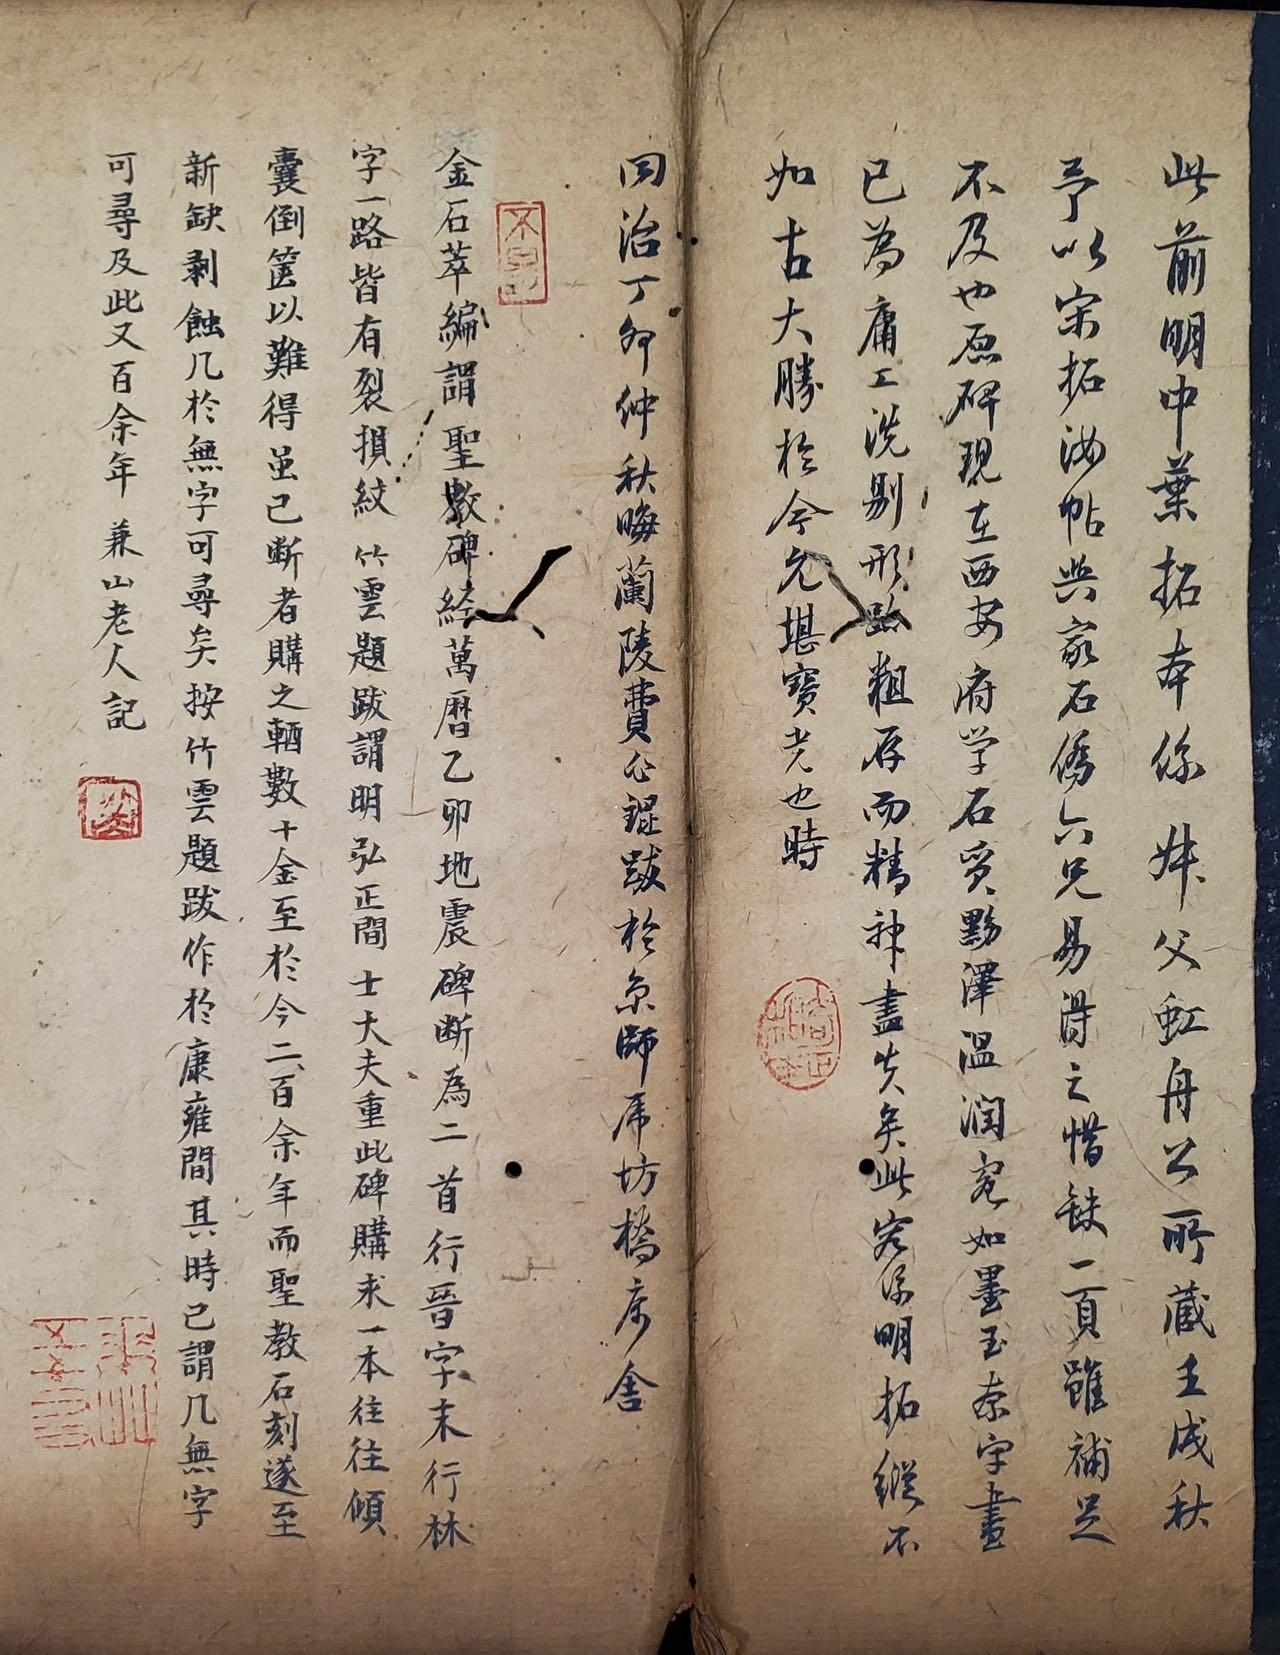 此前明中葉拓本係妹父虹舟公所藏壬戌秋
予以宋拓汝帖與家石僑六兄易得之惜缺一頁雖補足
不及也原碑現在西安府学石質黝澤温潤宛如墨玉奈字畫
已為庸工洗剔形跡粗存而精神盡失矣此宛係明拓縱不
如古大勝於今允堪寶光也時
同治丁卯仲秋晦蘭陵費公錕跋於京師虎坊橋康舍
金石萃編謂聖教碑經萬曆乙卯地震碑断為二首行晉字末行林
字一路皆有裂損紋竹雲題跋謂明弘正間士大夫重此碑購求一本往往傾
囊倒篋以難得虽已断者購之輒數十金至於今二百余年而聖教石刻遂至
新缺剥蝕几於無字可尋矣按竹雲題跋作於康雍間其時已謂几無字
可尋及此又百余年 兼山老人記